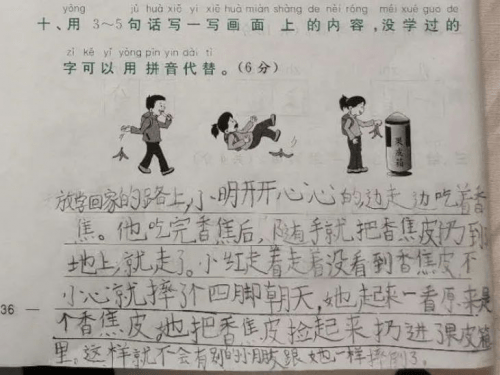 yòng jù huà xiě yi xiě huà miàn shàng de nèi róng méi xué guo de
十、用 3～5 句话写一写画面上的内容,没学过的
zì kě yǐ yòng pīn yīn dài tì
字可以用拼音代替。(6分)
果皮箱
放学回家的路上,小明开开心心的,边走边吃着香
焦。他吃完香焦后,随手就把香焦皮扔到
地上,就走了。小红走着走着没看到香焦皮不
小心就摔了个四脚朝天,她起来一看原来是
个香焦皮,她把香焦皮捡起来扔进了果皮箱
里。这样就不会有别的小朋友跟她一样摔倒了。
36